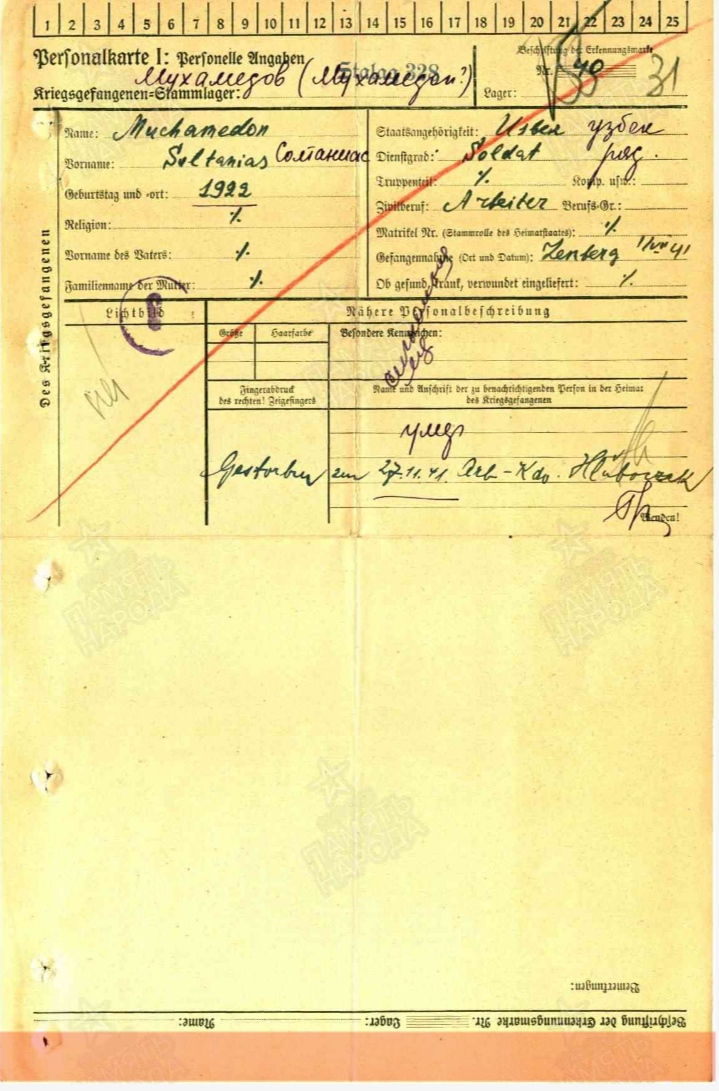 1 2 3 4 5 6 7 8 9 10 11 12 13 14 15 16 17 18 19 20 21 22 23 24 25
Personalkarte I: Personelle Angaben
Beschriftung der Erkennungsmarke
Мухамедов (Мухамедон?) Stalag 328
Nr. 40
31
Kriegsgefangenen=Stammlager:
Lager:
Des Kriegsgefangenen
Name: Muchamedon
Vorname: Soltanias Солтаниас
Geburtstag und -ort: 1922
Religion: ٪.
Vorname des Vaters: ٪.
Familienname der Mutter: ٪.
Staatsangehörigkeit: Usbek узбек
Dienstgrad: Soldat ряд.
Truppenteil: ٪. Komp. usw.:
Zivilberuf: Arbeiter Berufs-Gr.:
Matrikel Nr. (Stammrolle des Heimatstaates): ٪.
Gefangennahme (Ort und Datum): Lenberg
Ob gesund, krank, verwundet eingeliefert: ٪.
Lichtbild
Nähere Personalbeschreibung
Größe
Haarfarbe
Besondere Kennzeichen:
Fingerabdruck
des rechten! Zeigefingers
Name und Anschrift der zu benachrichtigenden Person in der Heimat
des Kriegsgefangenen
умер
Gestorben am 27.11.41 Arb-Kdo. Hluboczek
Wenden!
ПАМЯТЬ НАРОДА
ПАМЯТЬ НАРОДА
ПАМЯТЬ НАРОДА
Bemerkungen:
Beschriftung der Erkennungsmarke Nr. Lager: Name: